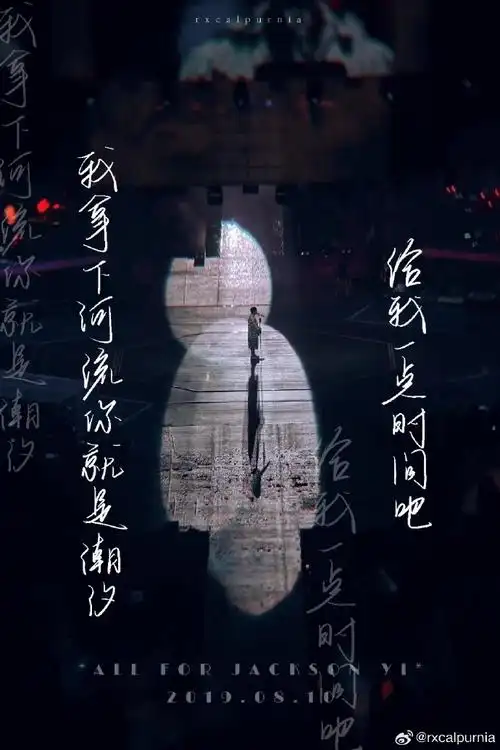 rxcalpurnia
我拿下河流你就是潮汐
我拿下河流你就是潮汐
给我一点时间吧
给我一点时间吧
*ALL FOR JACKSON YI*
2019.08.10
@rxcalpurnia